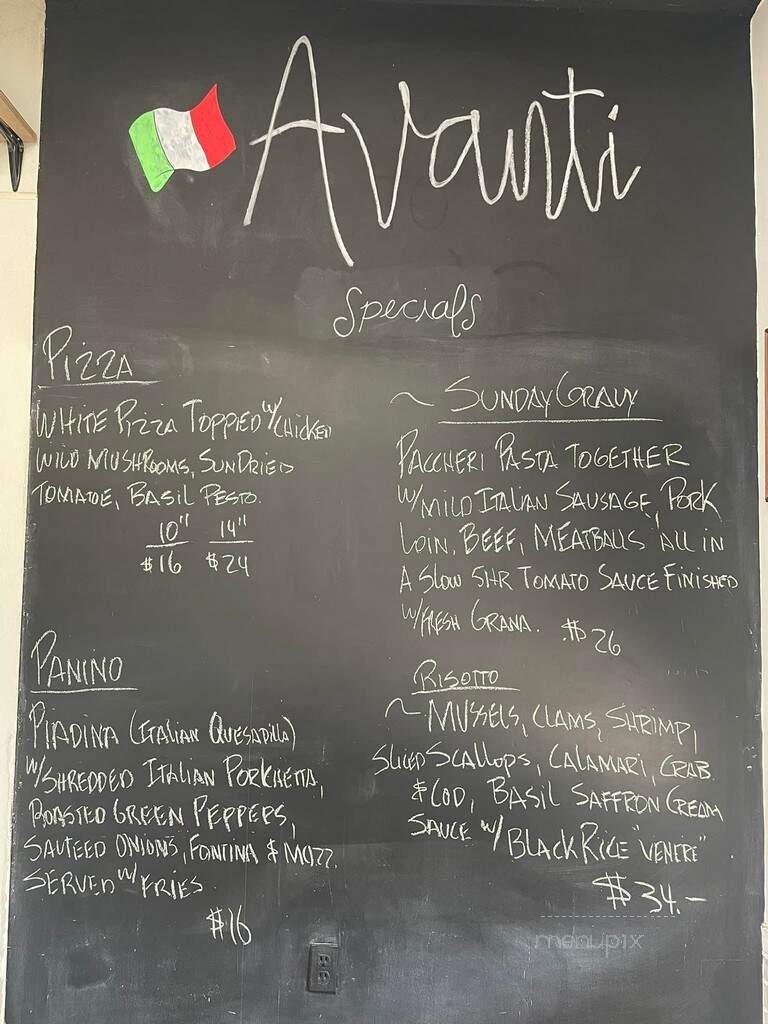 Avanti
Specials
PIZZA
WHITE PIZZA TOPPED W/ CHICKEN
WILD MUSHROOMS, SUNDRIED
TOMATOE, BASIL PESTO.
10" 14"
$16 $24
PANINO
PIADINA (ITALIAN QUESADILLA)
W/ SHREDDED ITALIAN PORKHETTA,
ROASTED GREEN PEPPERS,
SAUTEED ONIONS, FONTINA & MOZZ.
SERVED W/ FRIES
$16
~ SUNDAY GRAVY
PACCHERI PASTA TOGETHER
W/ MILD ITALIAN SAUSAGE, PORK
LOIN, BEEF, MEATBALLS ALL IN
A SLOW 5HR TOMATO SAUCE FINISHED
W/ FRESH GRANA. $26
RISOTTO
~ MUSSELS, CLAMS, SHRIMP,
SLICED SCALLOPS, CALAMARI, CRAB
& COD, BASIL SAFFRON CREAM
SAUCE W/ BLACK RICE "VENERE"
$34.-
menupix